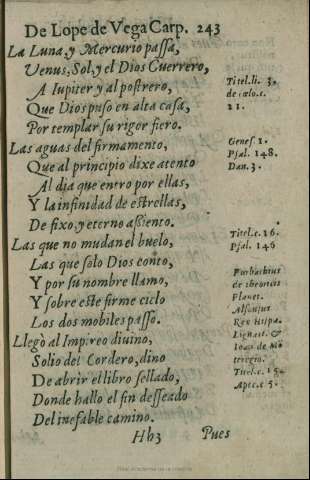 De Lope de Vega Carp. 243
La Luna, y Mercurio passa,
Venus, Sol, y el Dios Guerrero,
A Iupiter y al postrero,
Que Dios puso en alta casa,
Por templar su rigor fiero.
Las aguas del firmamento,
Que al principio dixe atento
Al dia que entro por ellas,
Y la infinidad de estrellas,
De fixo, y eterno assiento.
Las que no mudan el buelo,
Las que solo Dios conto,
Y por su nombre llamo,
Y sobre este firme cielo
Los dos mobiles passo.
Llegò al Impireo diuino,
Solio del Cordero, dino
De abrir el libro sellado,
Donde hallo el fin desseado
Del inefable camino.
Hh3 Pues
Titel.li. 3.
de cœlo.c.
21.
Genes. 1.
Psal. 148.
Dan. 3.
Titel.c. 16.
Psal. 146
Purbachius
de theoricis
Planet.
Alfonsus
Rex Hispa.
Ioan. de Mõ
teregio.
Titel.c. 15.
Apoc.c 5.